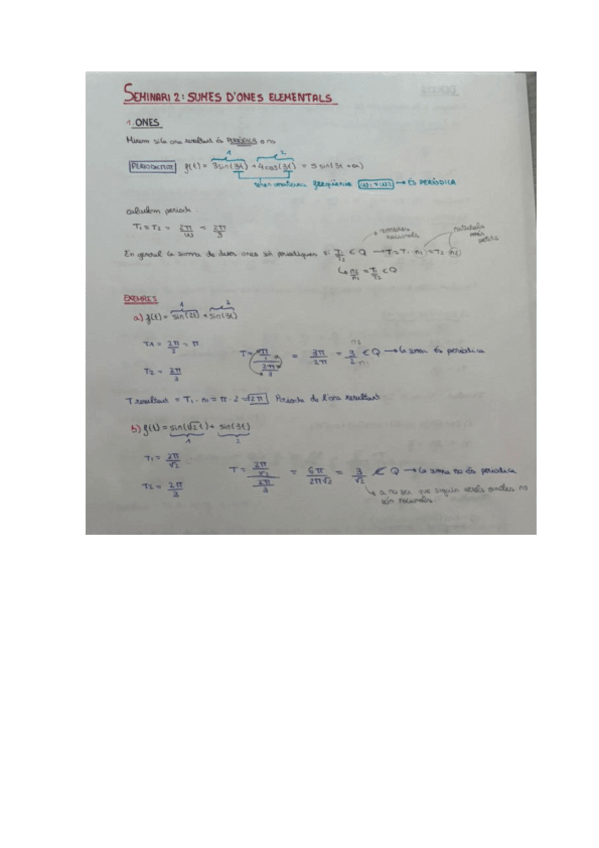 SEMINARI 2: SUMES D'ONES ELEMENTALS
1. ONES
Mirem si la ona resultant és PERIÒDICA o no
1 2
PERIODICITAT f(t) = 3sin(3t) + 4cos(3t) = 5 sin(3t + α)
tenen mateixa freqüència → ÉS PERIÒDICA
calculem període
T1 = T2 = 2π/ω = 2π/3
nombres racionals naturals més petits
En general la suma de dues ones són periòdiques si T1/T2 ∈ Q → T = T1 · n1 = T2 n2
↳ n2/n1 = T1/T2 ∈ Q
EXEMPLES
1 2
a) f(t) = sin(2t) + sin(3t)
T1 = 2π/2 = π
T = = 3π/2π = 3/2 ∈ Q → la suma és periòdica
n2
n1
T2 = 2π/3
T resultant = T1 · n1 = π · 2 = 2π Període de l'ona resultant
b) f(t) = sin(√2 t) + sin(3t)
1 2
T1 = 2π/√2
T = 2π/√2 / 2π/3 = 6π/2π√2 = 3/√2 ∉ Q → la suma no és periòdica
T2 = 2π/3
↳ a no ser que siguin arrels no
són racionals